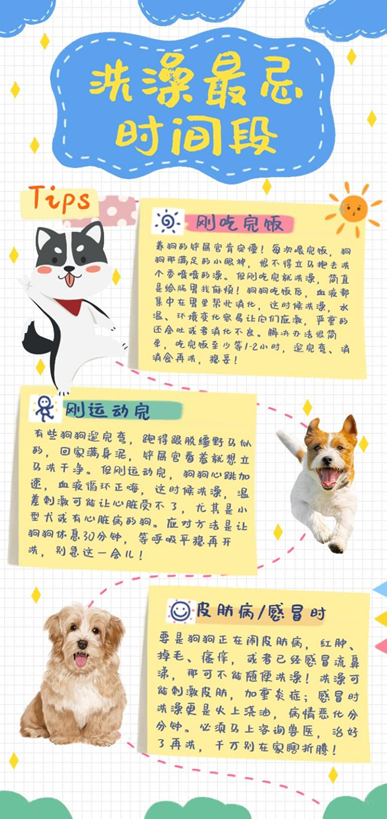 洗澡最忌
时间段
Tips
刚吃完饭
养狗的铲屎官肯定懂！每次喂完饭，狗
狗那满足的小眼神，恨不得立马抱去洗
个香喷喷的澡。但刚吃完就洗澡，简直
是给肠胃找麻烦！狗狗吃饭后，血液都
集中在胃里帮忙消化，这时候洗澡，水
温、环境变化容易让它们应激，严重的
还会吐或者消化不良。解决办法很简
单，吃完饭至少等1-2小时，遛完弯、消
消食再洗，稳妥！
刚运动完
有些狗狗遛完弯，跑得跟脱缰野马似
的，回家满身泥，铲屎官看着就想立
马洗干净。但刚运动完，狗狗心跳加
速，血液循环正嗨，这时候洗澡，温
差刺激可能让心脏受不了，尤其是小
型犬或有心脏病的狗。应对方法是让
狗狗休息30分钟，等呼吸平稳再开
洗，别急这一会儿！
皮肤病/感冒时
要是狗狗正在闹皮肤病，红肿、
掉毛、瘙痒，或者已经感冒流鼻
涕，那可不能随便洗澡！洗澡可
能刺激皮肤，加重炎症；感冒时
洗澡更是火上浇油，病情恶化分
分钟。必须马上咨询兽医，治好
了再洗，千万别在家瞎折腾！